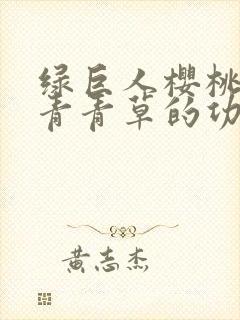 绿巨人樱桃
青青草的功
黄志杰